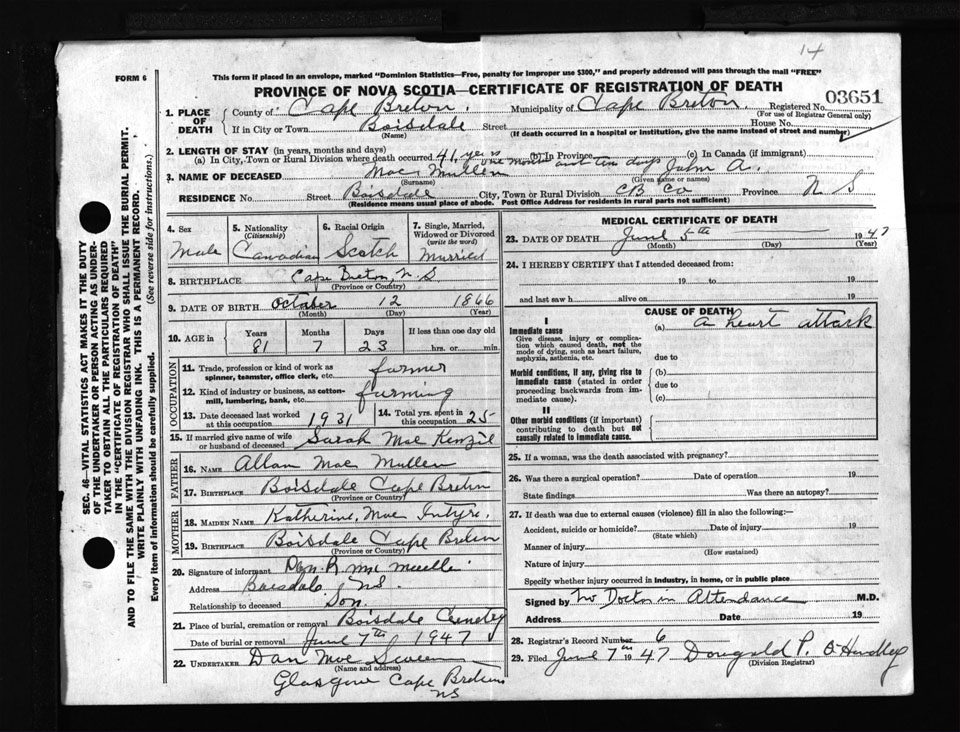 14
FORM 6
This form if placed in an envelope, marked "Dominion Statistics—Free, penalty for improper use $300," and properly addressed will pass through the mail "FREE"
PROVINCE OF NOVA SCOTIA—CERTIFICATE OF REGISTRATION OF DEATH
1. PLACE OF DEATH
County of Cape Breton. Municipality of Cape Breton. Registered No. 03651
(For use of Registrar General only)
If in City or Town Boisdale Street House No.
(Name) (If death occurred in a hospital or institution, give the name instead of street and number)
2. LENGTH OF STAY (in years, months and days)
(a) In City, Town or Rural Division where death occurred 41, years one month and ten days (b) In Province (c) In Canada (if immigrant)
3. NAME OF DECEASED Mac Mullen John A.
(Surname) (Given name or names)
RESIDENCE No. Street Boisdale City, Town or Rural Division CB Co Province N S
(Residence means usual place of abode. Post Office Address for residents in rural parts not sufficient)
4. Sex Male
5. Nationality (Citizenship) Canadian
6. Racial Origin Scotch
7. Single, Married, Widowed or Divorced (write the word) Married
8. BIRTHPLACE Cape Breton N. S.
(Province or Country)
9. DATE OF BIRTH October 12 1866
(Month) (Day) (Year)
10. AGE in Years Months Days If less than one day old
81 7 23 hrs. or min.
OCCUPATION
11. Trade, profession or kind of work as spinner, teamster, office clerk, etc. farmer
12. Kind of industry or business, as cotton-mill, lumbering, bank, etc. farming
13. Date deceased last worked at this occupation 1931
14. Total yrs. spent in this occupation 25
15. If married give name of wife or husband of deceased Sarah Mac Kenzie
FATHER
16. NAME Allan Mac Mullen
17. BIRTHPLACE Boisdale Cape Breton
(Province or Country)
MOTHER
18. MAIDEN NAME Katherine, Mac Intyre.
19. BIRTHPLACE Boisdale Cape Breton
(Province or Country)
20. Signature of informant Dan R. Mac
Address Boisdale NS.
Relationship to deceased Son.
21. Place of burial, cremation or removal Boisdale Cemetery
Date of burial or removal June 7th 1947
22. UNDERTAKER Dan Mac
(Name and address)
Cape Breton
NS
MEDICAL CERTIFICATE OF DEATH
23. DATE OF DEATH June 5th 1947
(Month) (Day) (Year)
24. I HEREBY CERTIFY that I attended deceased from:
19 to 19
and last saw h alive on 19
CAUSE OF DEATH
I
Immediate cause (a) a heart attack
Give disease, injury or complication which caused death, not the mode of dying, such as heart failure, asphyxia, asthenia, etc.
due to
Morbid conditions, if any, giving rise to immediate cause (stated in order proceeding backwards from immediate cause).
(b)
due to
(c)
II
Other morbid conditions (if important) contributing to death but not causally related to immediate cause.
25. If a woman, was the death associated with pregnancy?
26. Was there a surgical operation? Date of operation 19
State findings Was there an autopsy?
27. If death was due to external causes (violence) fill in also the following:—
Accident, suicide or homicide? Date of injury 19
(State which)
Manner of injury
(How sustained)
Nature of injury
Specify whether injury occurred in industry, in home, or in public place
Signed by No Doctor in Attendance M.D.
Address Date 19
28. Registrar's Record Number 6
29. Filed June 7th 1947 Dougald P.
(Division Registrar)
SEC. 46—VITAL STATISTICS ACT MAKES IT THE DUTY
OF THE UNDERTAKER OR PERSON ACTING AS UNDER-
TAKER TO OBTAIN ALL THE PARTICULARS REQUIRED
IN THE "CERTIFICATE OF REGISTRATION OF DEATH"
AND TO FILE THE SAME WITH THE DIVISION REGISTRAR WHO SHALL ISSUE THE BURIAL PERMIT.
WRITE PLAINLY WITH UNFADING INK. THIS IS A PERMANENT RECORD.
Every item of information should be carefully supplied. (See reverse side for instructions.)